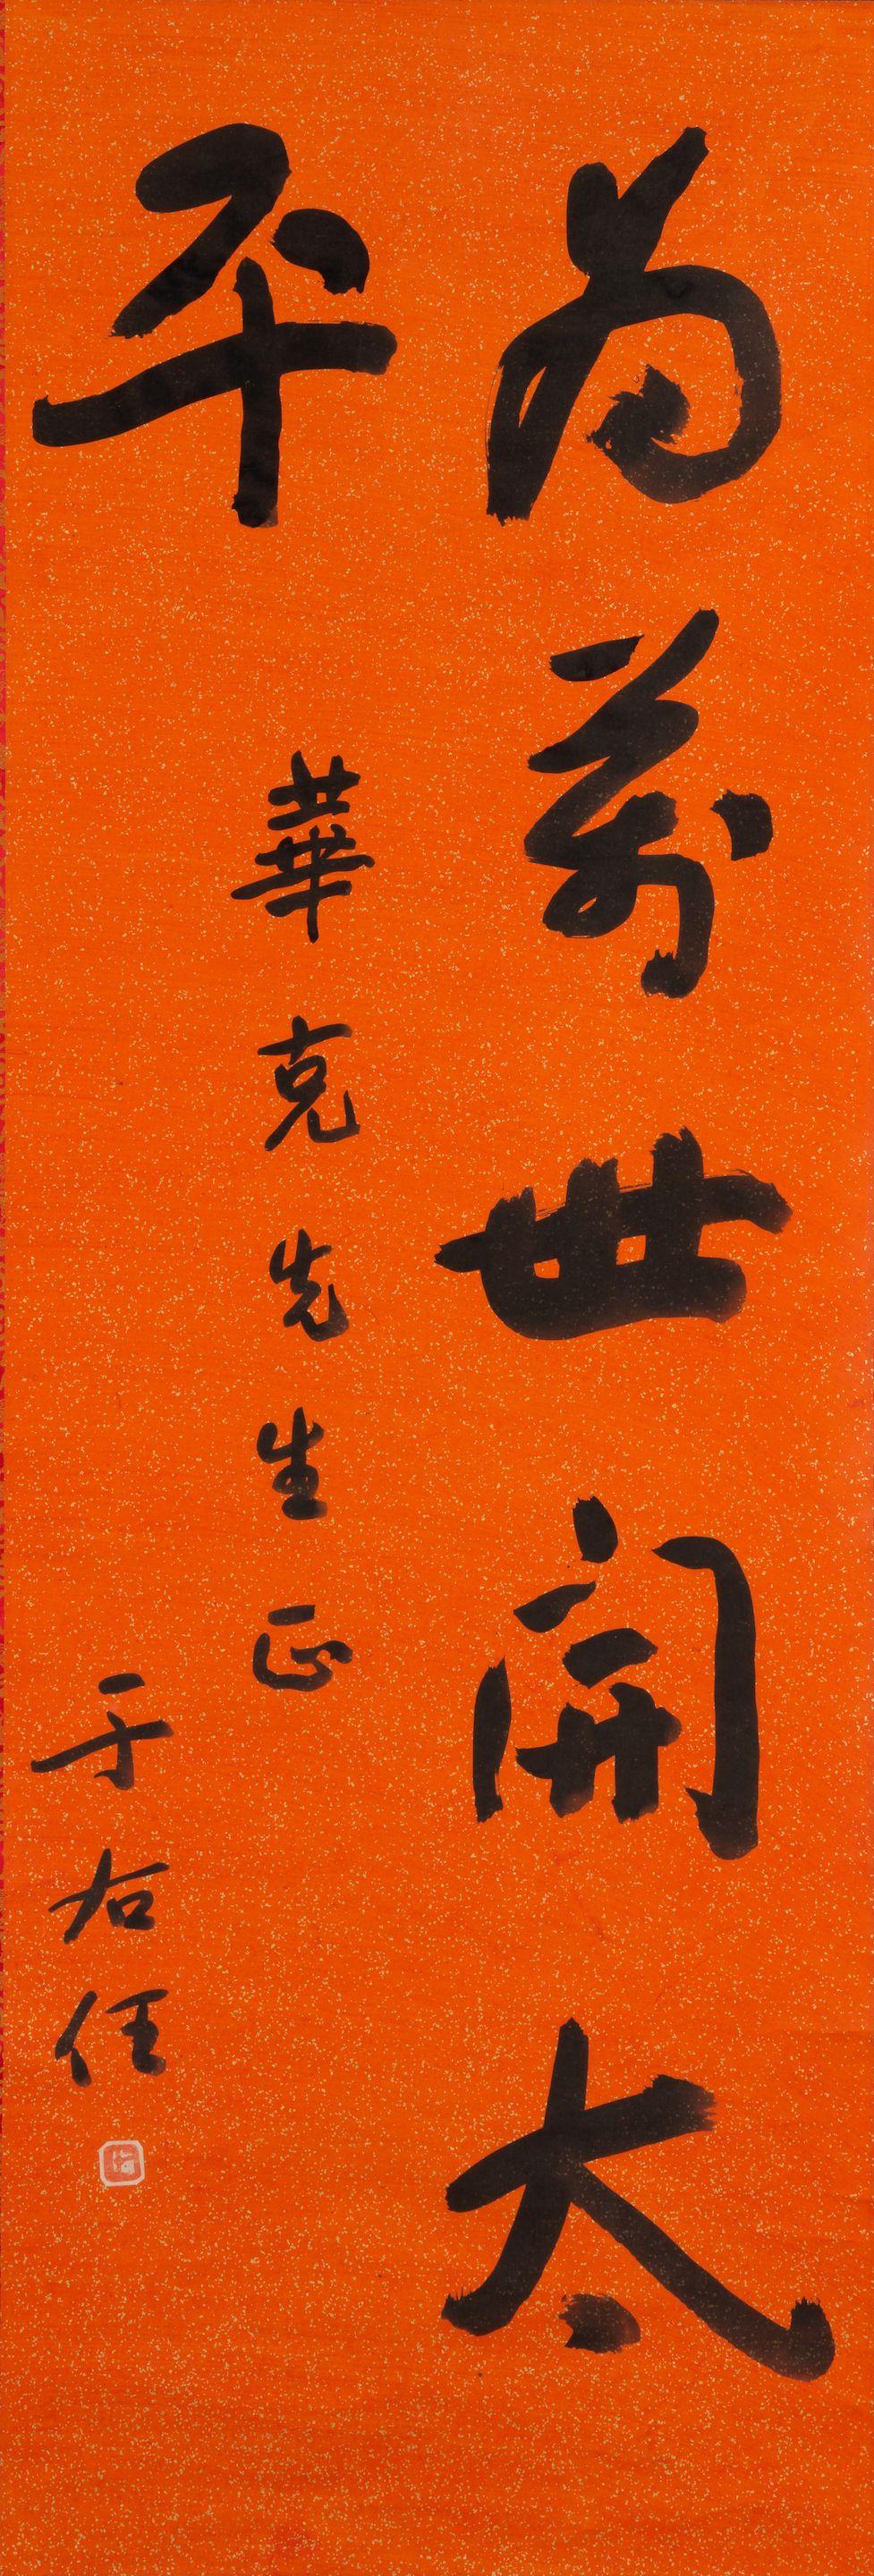 為萬世開太
平
華克先生正
于右任